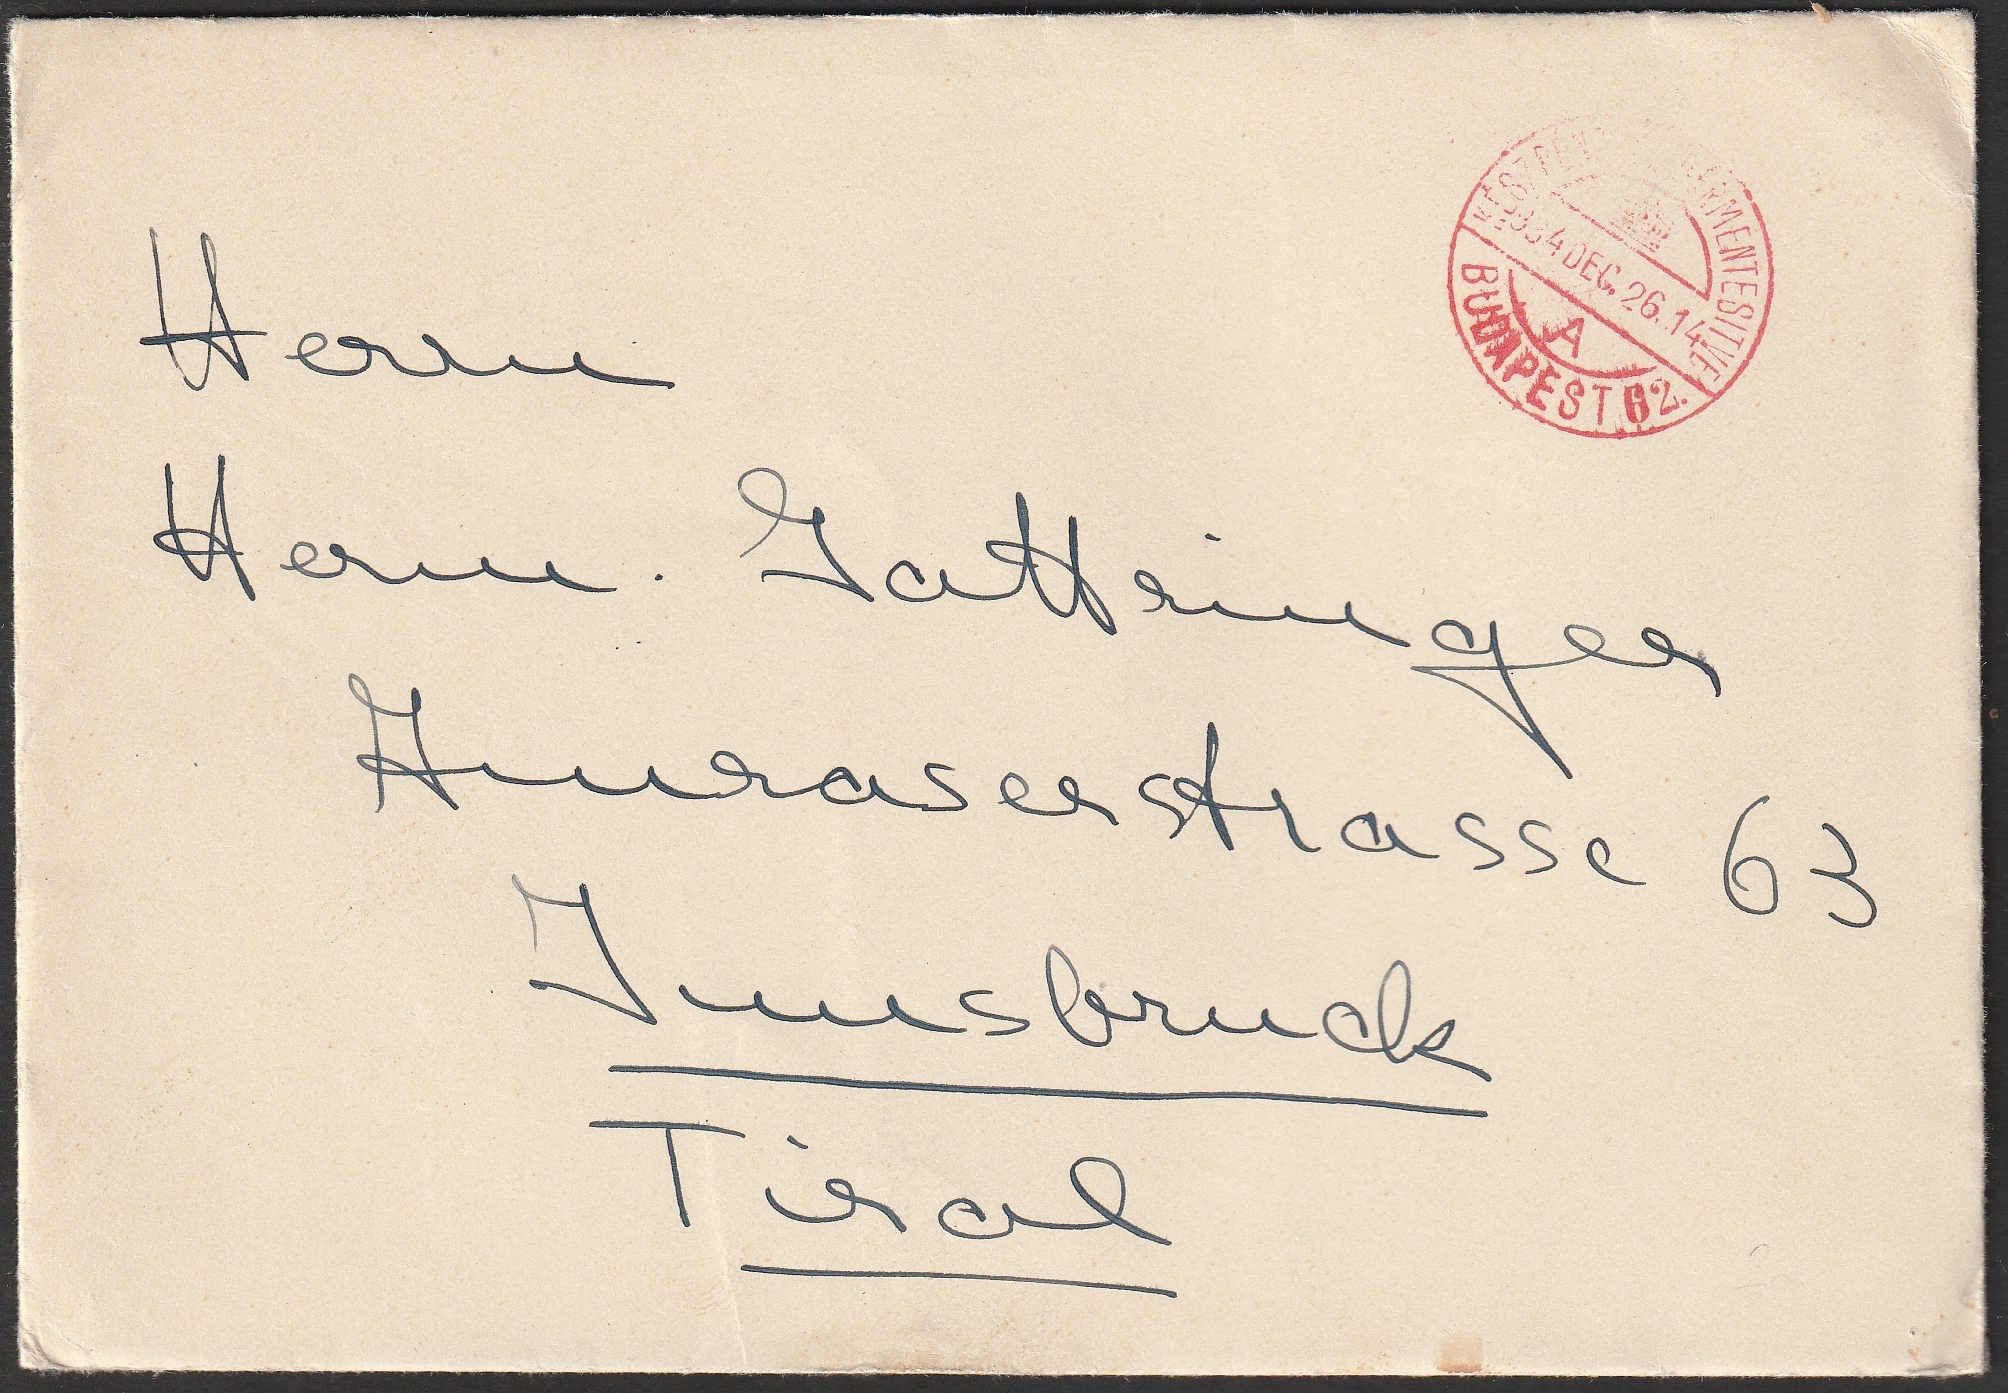 KÉSZPÉNZZEL BÉRMENTESÍTVE
934 DEC. 26. 14
A
BUDAPEST 62.
Herrn
Herm. Gattringer
Amraserstrasse 63
Innsbruck
Tirol